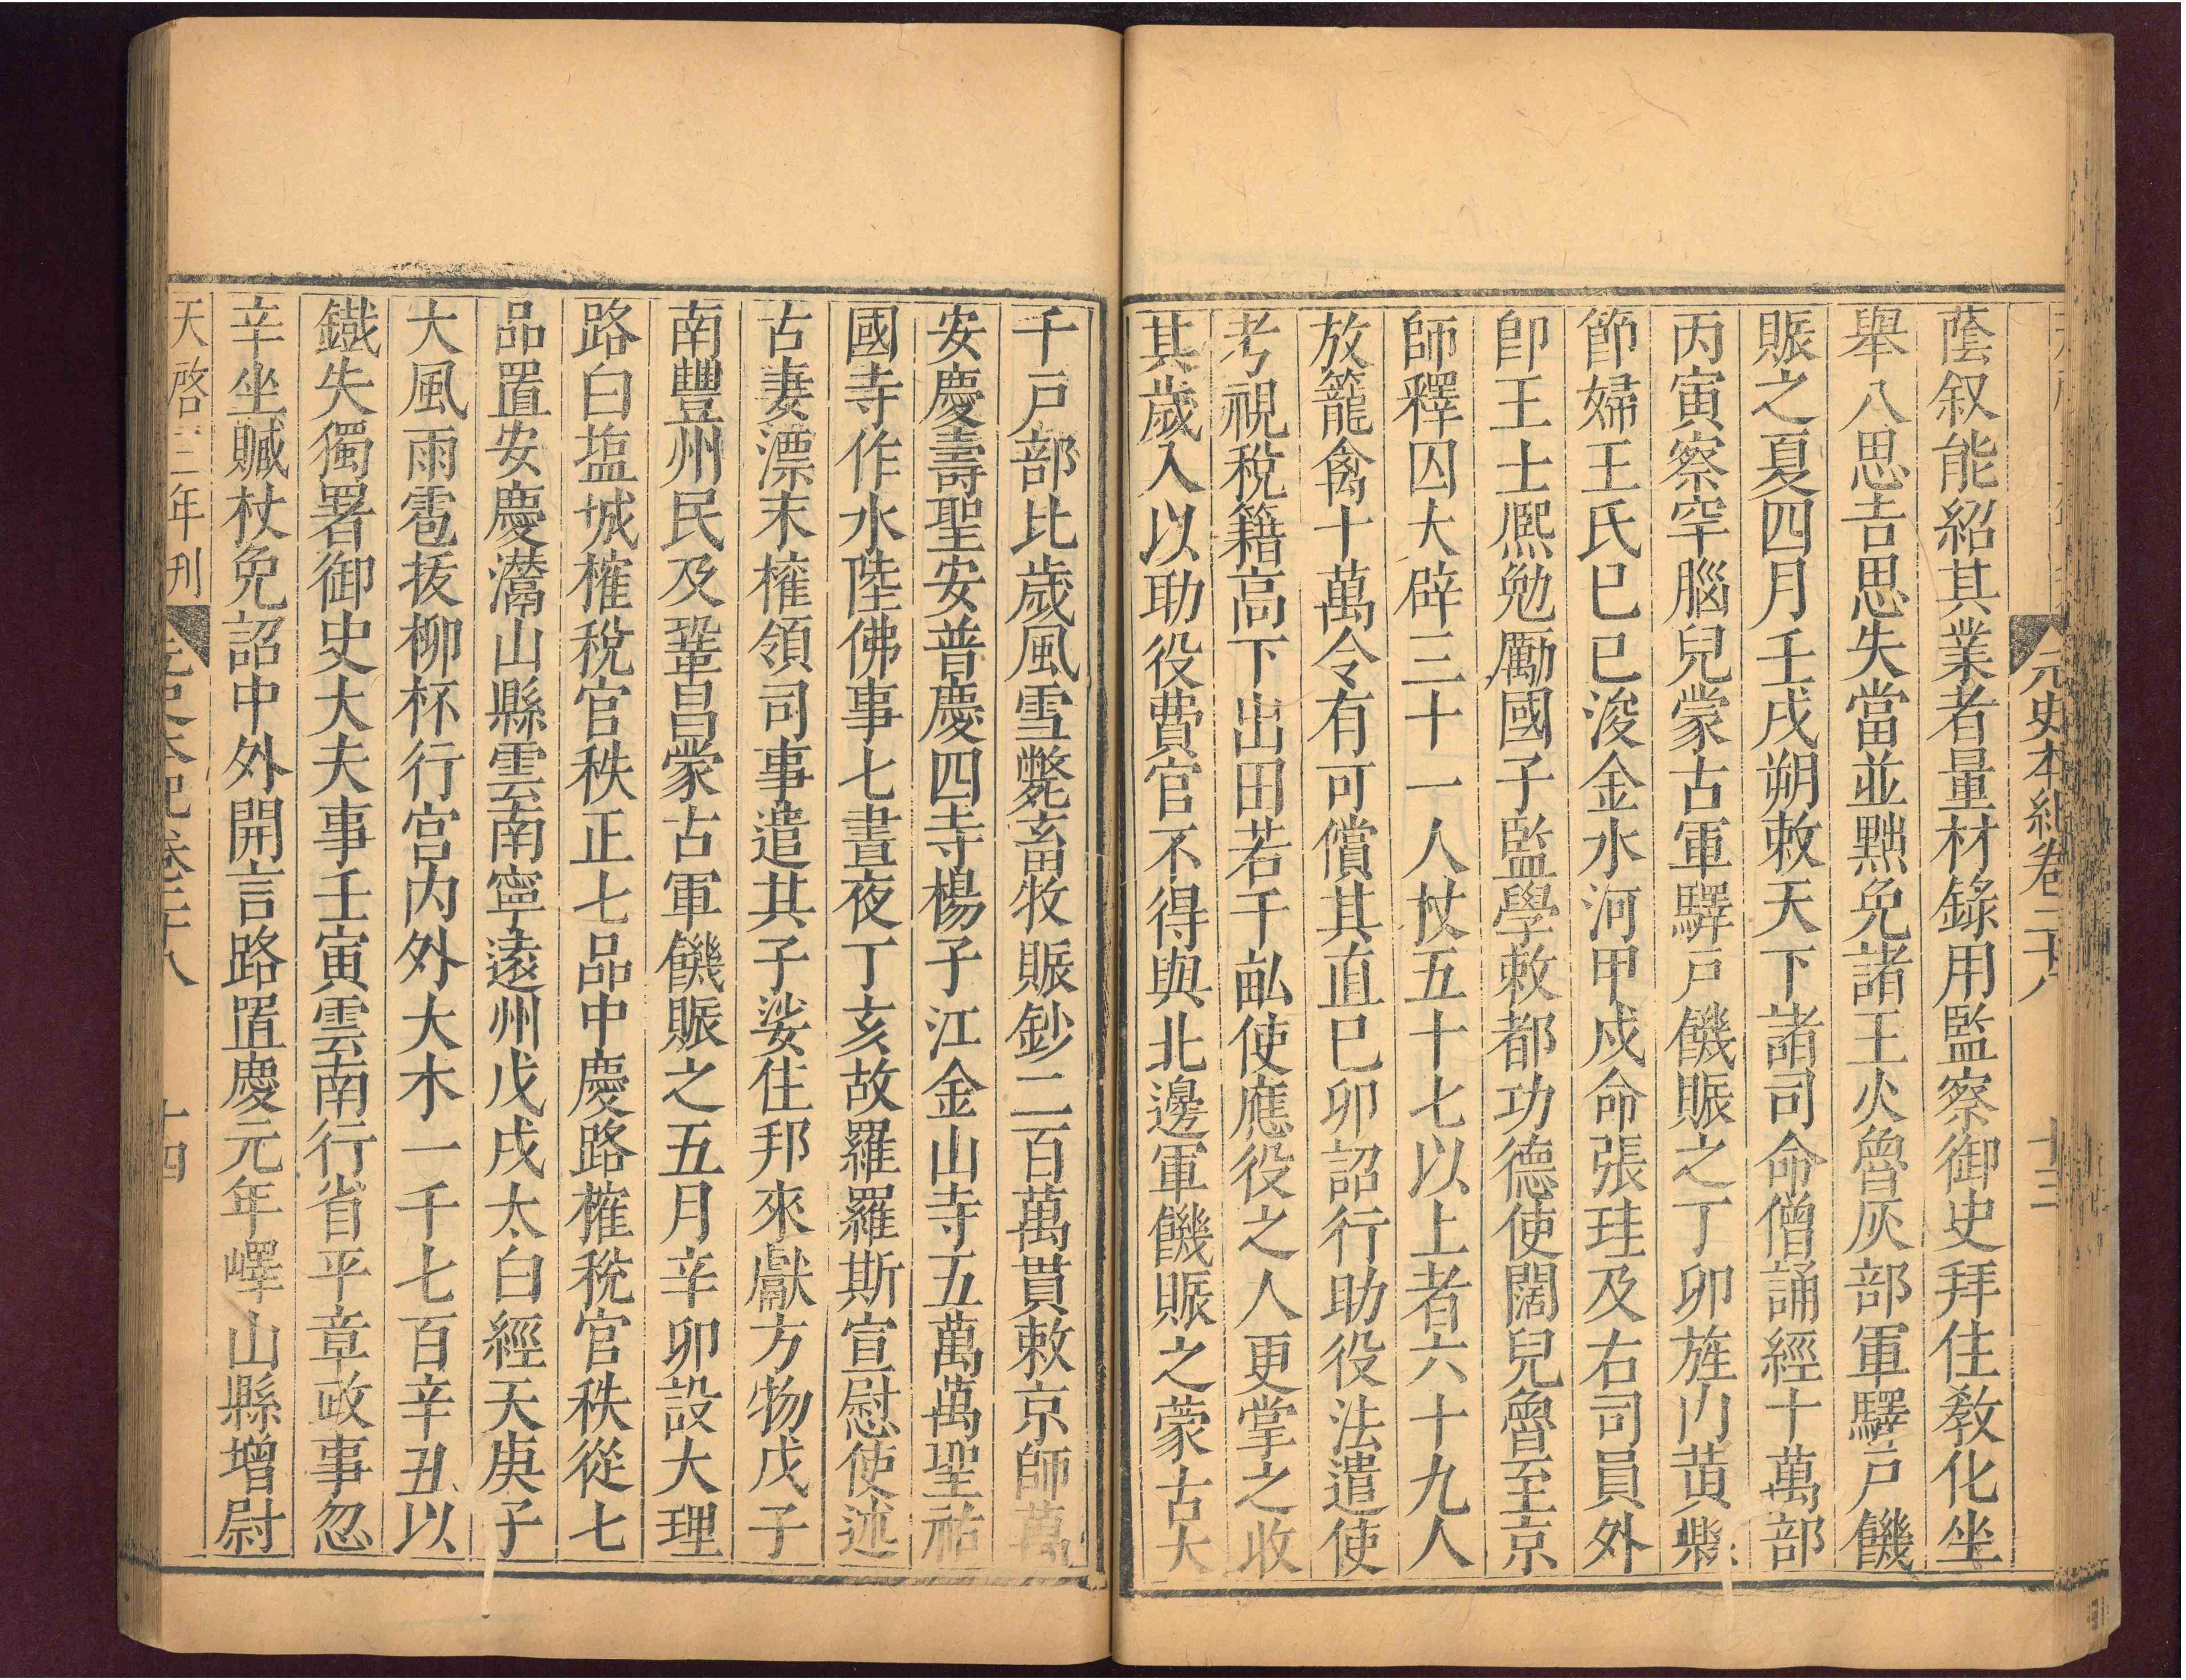 元史本紀卷二十八 十三
蔭叙能紹其業者量材錄用監察御史拜住教化坐
舉八思吉思失當並黜免諸王火魯灰部軍驛戸饑
賑之夏四月壬戌朔敕天下諸司命僧誦經十萬部
丙寅察罕腦兒蒙古軍驛戸饑賑之丁卯旌内黄縣
節婦王氏巳巳浚金水河甲戌命張珪及右司員外
郎王士熈勉勵國子監學敕都功德使闊兒魯至京
師釋囚大辟三十一人杖五十七以上者六十九人
放籠禽十萬令有可償其直巳卯詔行助役法遣使
考視稅籍高下出田若干畝使應役之人更掌之收
其歲入以助役費官不得與北邊軍饑賑之蒙古大
千戸部比歲風雪斃畜牧賑鈔二百萬貫敕京師萬
安慶壽聖安普慶四寺楊子江金山寺五萬萬聖祐
國寺作水陸佛事七晝夜丁亥故羅羅斯宣慰使述
古妻漂末權領司事遣其子娑住邦來獻方物戊子
南豐州民及鞏昌蒙古軍饑賑之五月辛卯設大理
路白塩城榷稅官秩正七品中慶路榷稅官秩從七
品置安慶灊山縣雲南寧遠州戊戌太白經天庚子
大風雨雹拔柳林行宮内外大木一千七百辛丑以
鐵失獨署御史大夫事壬寅雲南行省平章政事忽
辛坐贓杖免詔中外開言路置慶元年嶧山縣增尉
天啓二年刊 元史本紀卷二十八 十四